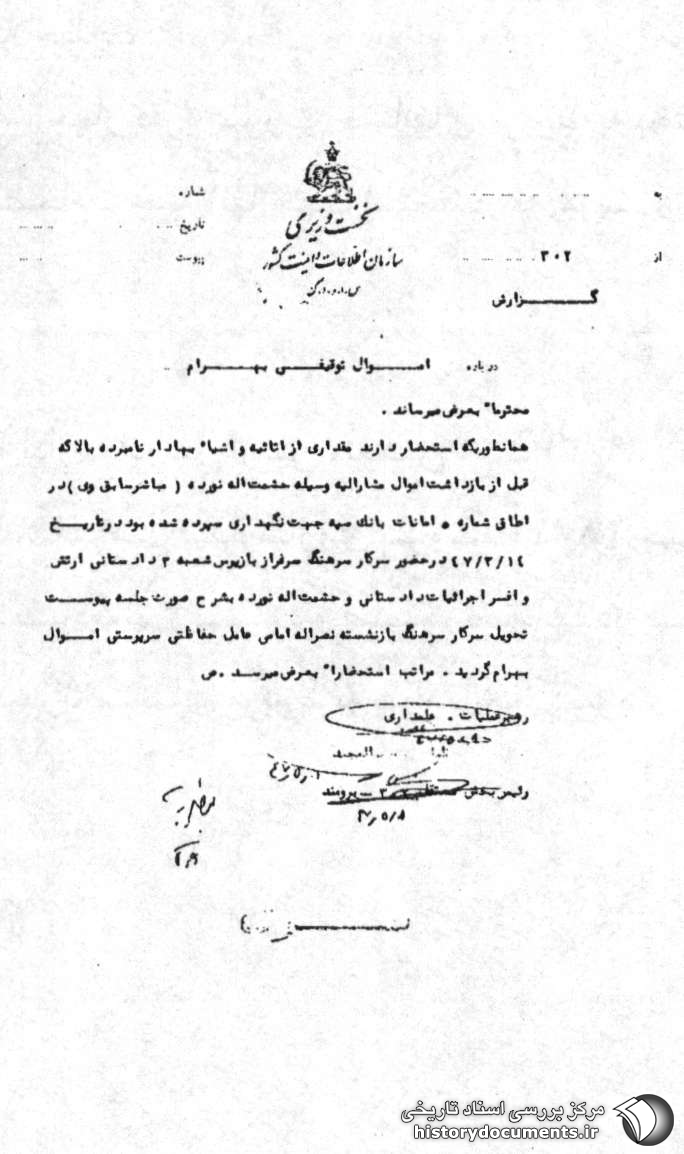 نخست وزیری
سازمان اطلاعات و امنیت کشور
س.ا.و.ا.ک
به
از ۳۰۲
شماره
تاریخ
پیوست
گــــزارش
درباره امـــوال توقیفــی بهــــرام
محترما" بعرض میرساند .
همانطوریکه استحضار دارند مقداری از اثاثیه و اشیاء بهادار نامبرده بالا که
قبل از بازداشت اموال مشارالیه وسیله حشمت‌اله نورده ( مباشر سابق وی ) در
اطاق شماره ۵ امانات بانک سپه جهت نگهداری سپرده شده بود در تاریــخ
۴۷/۳/۱۴ در حضور سرکار سرهنگ سرفراز بازپرس شعبه ۳ دادستانی ارتش
و افسر اجرائیات دادستانی و حشمت‌اله نورده بشرح صورت جلسه پیوســت
تحویل سرکار سرهنگ بازنشسته نصراله امامی عامل حفاظتی سرپرستی امــوال
بهرام گردید . مراتب استحضارا" بعرض میرسد . ص
رهبر عملیات . علمداری
رئیس بخش ۳ – برومند
۴۷/۵/۸
مرکز بررسی اسناد تاریخی
historydocuments.ir